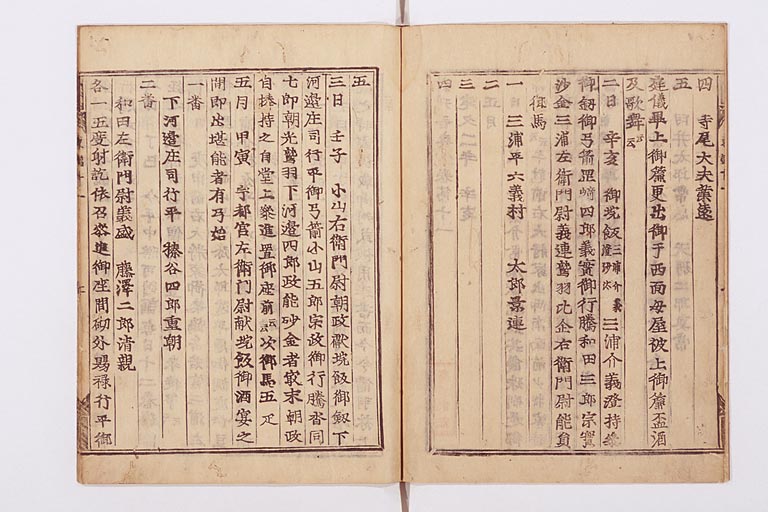 四 寺尾大夫業遠
五
庭儀畢上御簾更出御于西面母屋被上御簾盃酒
及歌舞云云
二日 辛亥 御埦飯三浦介義澄沙汰 三浦介義澄持参
御釼御弓箭岡崎四郎義實御行騰和田三郎宗實
沙金三浦左衛門尉義連鷲羽比企右衛門尉能員
御馬
一 三浦平六義村 太郎景連
二
三
四
五
三日 壬子 小山右衛門尉朝政献埦飯御釼下
河邉庄司行平御弓箭小山五郎宗政御行騰沓同
七郎朝光鷲羽下河邉四郎政能砂金者最末朝政
自捧持之自堂上参進置御座前云云次御馬五疋
五日 甲寅 宇都宮左衛門尉献埦飯御酒宴之
間即出堪能者有弓始
一番
下河邉庄司行平 榛谷四郎重朝
二番
和田左衛門尉義盛 藤澤二郎清親
各一五度射訖依召参進御座間砌外賜禄行平御